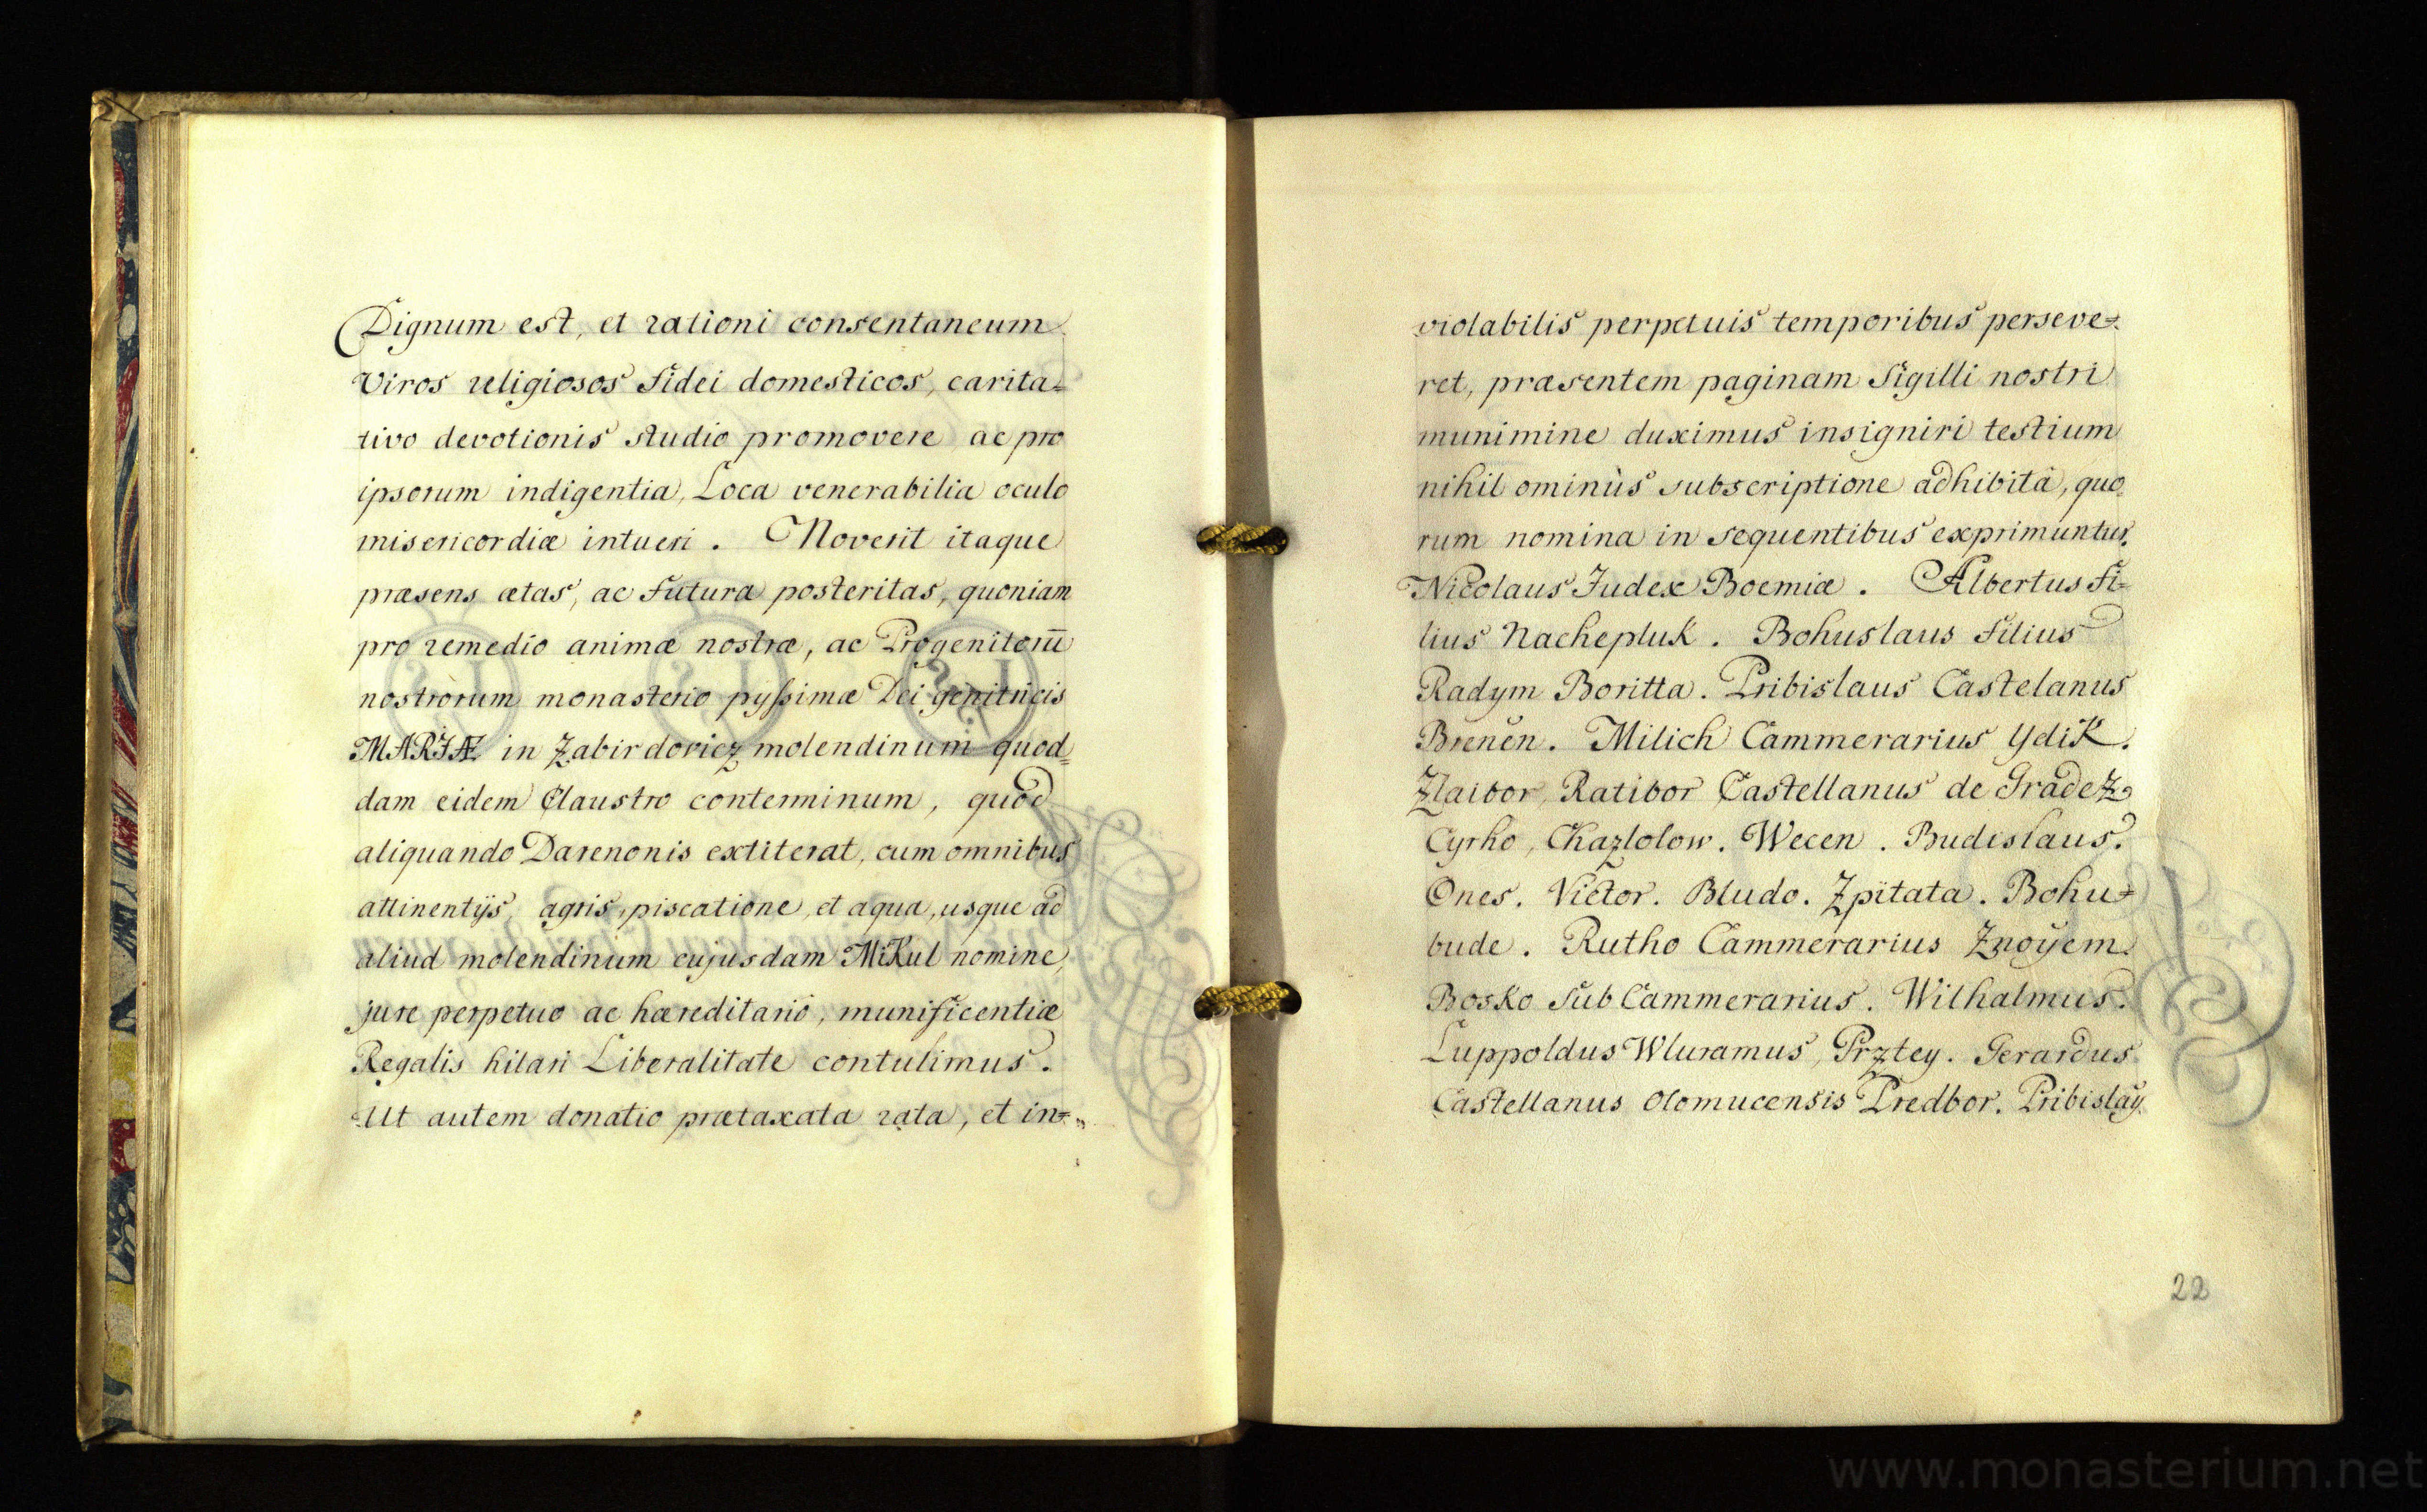 Dignum est, et rationi consentaneum
Viros religiosos fidei domesticos, carita=
tivo devotionis studio promovere ac pro
ipsorum indigentia, Loca venerabilia oculo
misericordiæ intueri. Noverit itaque
præsens ætas, ac futura posteritas, quoniam
pro remedio animæ nostræ, ac Progenitorū
nostrorum monasterio pyssimæ Dei genitricis
MARIÆ in Zabirdovicz molendinum quod=
dam eidem Claustro conterminum, quod
aliquando Darenonis extiterat, cum omnibus
attinentÿs, agris, piscatione, et aqua, usque ad
aliud molendinum cujusdam Mikul nomine,
jure perpetuo ac hæreditariò, munificentiæ
Regalis hilari Liberalitate contulimus.
Ut autem donatio prætaxata rata, et in=
violabilis perpetuis temporibus perseve=
ret, præsentem paginam Sigilli nostri
munimine duximus insigniri testium
nihil ominùs subscriptione adhibitâ, quo
rum nomina in sequentibus exprimuntur.
Nicolaus Judex Boemiæ. Albertus fi=
lius Nachepluk. Bohuslaus filius
Radym Boritta. Pribislaus Castelanus
Brenen. Milich Cammerarius Ydik.
Zlaibor, Ratibor Castellanus de Gradez
Cyrho, Chazlolow. Wecen. Budislaus.
Ones. Victor. Bludo. Zpitata. Bohu=
bude. Rutho Cammerarius Znoÿem.
Bosko SubCammerarius. Wilhalmus.
Luppoldus Wluramus, Prztey. Gerardus
Castellanus Olomucensis Predbor. Pribislaÿ
22
www.monasterium.net